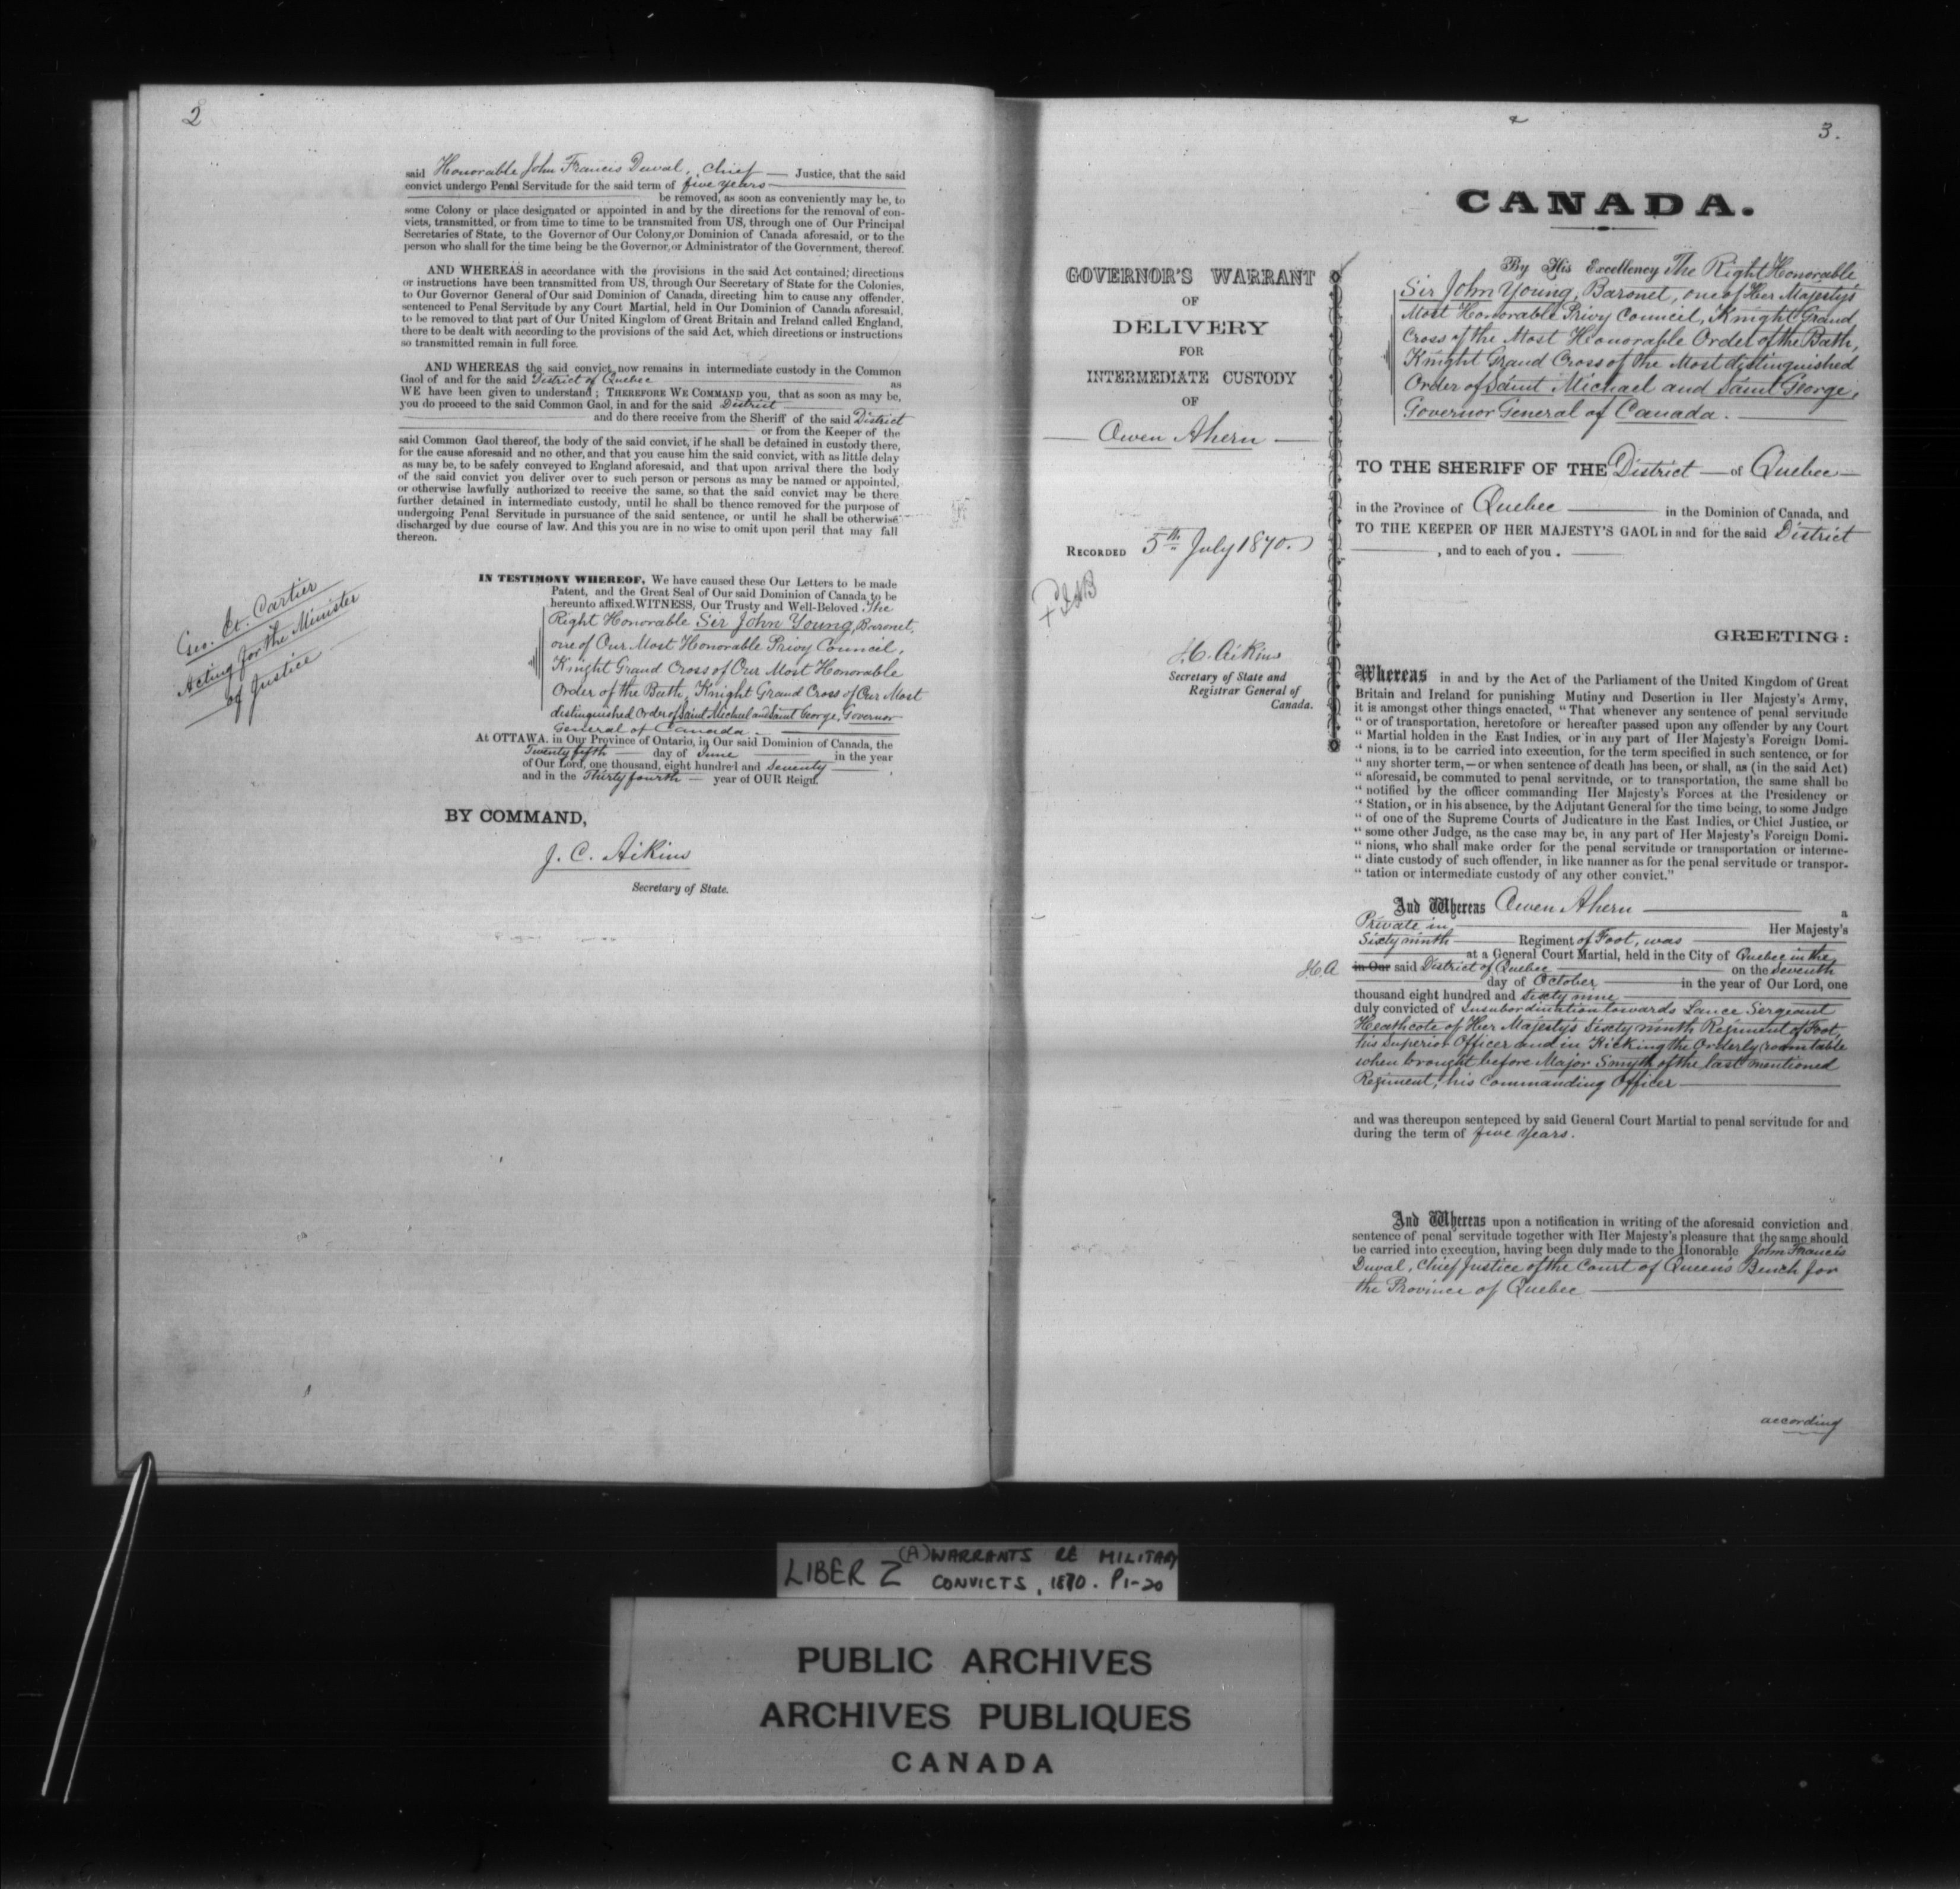 2
said Honorable John Francis Duval, Chief — Justice, that the said
convict undergo Penal Servitude for the said term of five years
be removed, as soon as conveniently may be, to
some Colony or place designated or appointed in and by the directions for the removal of con-
victs, transmitted, or from time to time to be transmited from US, through one of Our Principal
Secretaries of State, to the Governor of Our Colony, or Dominion of Canada aforesaid, or to the
person who shall for the time being be the Governor, or Administrator of the Government, thereof.
AND WHEREAS in accordance with the provisions in the said Act contained; directions
or instructions have been transmitted from US, through Our Secretary of State for the Colonies,
to Our Governor General of Our said Dominion of Canada, directing him to cause any offender,
sentenced to Penal Servitude by any Court Martial, held in Our Dominion of Canada aforesaid,
to be removed to that part of Our United Kingdom of Great Britain and Ireland called England,
there to be dealt with according to the provisions of the said Act, which directions or instructions
so transmitted remain in full force.
AND WHEREAS the said convict now remains in intermediate custody in the Common
Gaol of and for the said District of Quebec as
WE have been given to understand; THEREFORE WE COMMAND you, that as soon as may be,
you do proceed to the said Common Gaol, in and for the said District
and do there receive from the Sheriff of the said District
or from the Keeper of the
said Common Gaol thereof, the body of the said convict, if he shall be detained in custody there,
for the cause aforesaid and no other, and that you cause him the said convict, with as little delay
as may be, to be safely conveyed to England aforesaid, and that upon arrival there the body
of the said convict you deliver over to such person or persons as may be named or appointed,
or otherwise lawfully authorized to receive the same, so that the said convict may be there
further detained in intermediate custody, until he shall be thence removed for the purpose of
undergoing Penal Servitude in pursuance of the said sentence, or until he shall be otherwise
discharged by due course of law. And this you are in no wise to omit upon peril that may fall
thereon.
Geo. Et. Cartier
Acting for the Minister
of Justice
IN TESTIMONY WHEREOF. We have caused these Our Letters to be made
Patent, and the Great Seal of Our said Dominion of Canada to be
hereunto affixed. WITNESS, Our Trusty and Well-Beloved The
Right Honorable Sir John Young, Baronet,
one of Our Most Honorable Privy Council,
Knight Grand Cross of Our Most Honorable
Order of the Bath, Knight Grand Cross of Our Most
distinguished Order of Saint Michael and Saint George, Governor
General of Canada.
At OTTAWA. in Our Province of Ontario, in Our said Dominion of Canada, the
Twenty fifth day of June in the year
of Our Lord, one thousand, eight hundred and seventy
and in the Thirty fourth — year of OUR Reign.
BY COMMAND,
J. C. Aikins
Secretary of State.
3.
GOVERNOR'S WARRANT
OF
DELIVERY
FOR
INTERMEDIATE CUSTODY
OF
— Owen Ahern —
RECORDED 5th July 1870.
J.C. Aikins
Secretary of State and
Registrar General of
Canada.
CANADA.
By His Excellency The Right Honorable
Sir John Young, Baronet, one of Her Majesty's
Most Honorable Privy Council, Knight Grand
Cross of the Most Honorable Order of the Bath,
Knight Grand Cross of the Most distinguished
Order of Saint Michael and Saint George,
Governor General of Canada.
TO THE SHERIFF OF THE District — of Quebec —
in the Province of Quebec — in the Dominion of Canada, and
TO THE KEEPER OF HER MAJESTY'S GAOL in and for the said District
, and to each of you.
GREETING:
Whereas in and by the Act of the Parliament of the United Kingdom of Great
Britain and Ireland for punishing Mutiny and Desertion in Her Majesty's Army,
it is amongst other things enacted, "That whenever any sentence of penal servitude
" or of transportation, heretofore or hereafter passed upon any offender by any Court
" Martial holden in the East Indies, or in any part of Her Majesty's Foreign Domi-
" nions, is to be carried into execution, for the term specified in such sentence, or for
" any shorter term,—or when sentence of death has been, or shall, as (in the said Act)
" aforesaid, be commuted to penal servitude, or to transportation, the same shall be
" notified by the officer commanding Her Majesty's Forces at the Presidency or
" Station, or in his absence, by the Adjutant General for the time being, to some Judge
" of one of the Supreme Courts of Judicature in the East Indies, or Chief Justice, or
" some other Judge, as the case may be, in any part of Her Majesty's Foreign Domi-
" nions, who shall make order for the penal servitude or transportation or interme-
" diate custody of such offender, in like manner as for the penal servitude or transpor-
" tation or intermediate custody of any other convict."
And Whereas Owen Ahern — a
Private in Her Majesty's
Sixty ninth Regiment of Foot, was
at a General Court Martial, held in the City of Quebec in the
in Our said District of Quebec — on the Seventh
day of October — in the year of Our Lord, one
thousand eight hundred and sixty nine
duly convicted of Insubordination towards Lance Sergeant
Heathcote of Her Majesty's Sixty ninth Regiment of Foot,
his Superior Officer and in Kicking the Orderly room table
when brought before Major Smyth of the last mentioned
Regiment, his Commanding Officer
and was thereupon sentenced by said General Court Martial to penal servitude for and
during the term of five years.
And Whereas upon a notification in writing of the aforesaid conviction and
sentence of penal servitude together with Her Majesty's pleasure that the same should
be carried into execution, having been duly made to the Honorable John Francis
Duval, Chief Justice of the Court of Queen's Bench for
the Province of Quebec
according
LIBER Z (A) WARRANTS RE MILITARY
CONVICTS, 1870. P1-20
PUBLIC ARCHIVES
ARCHIVES PUBLIQUES
CANADA